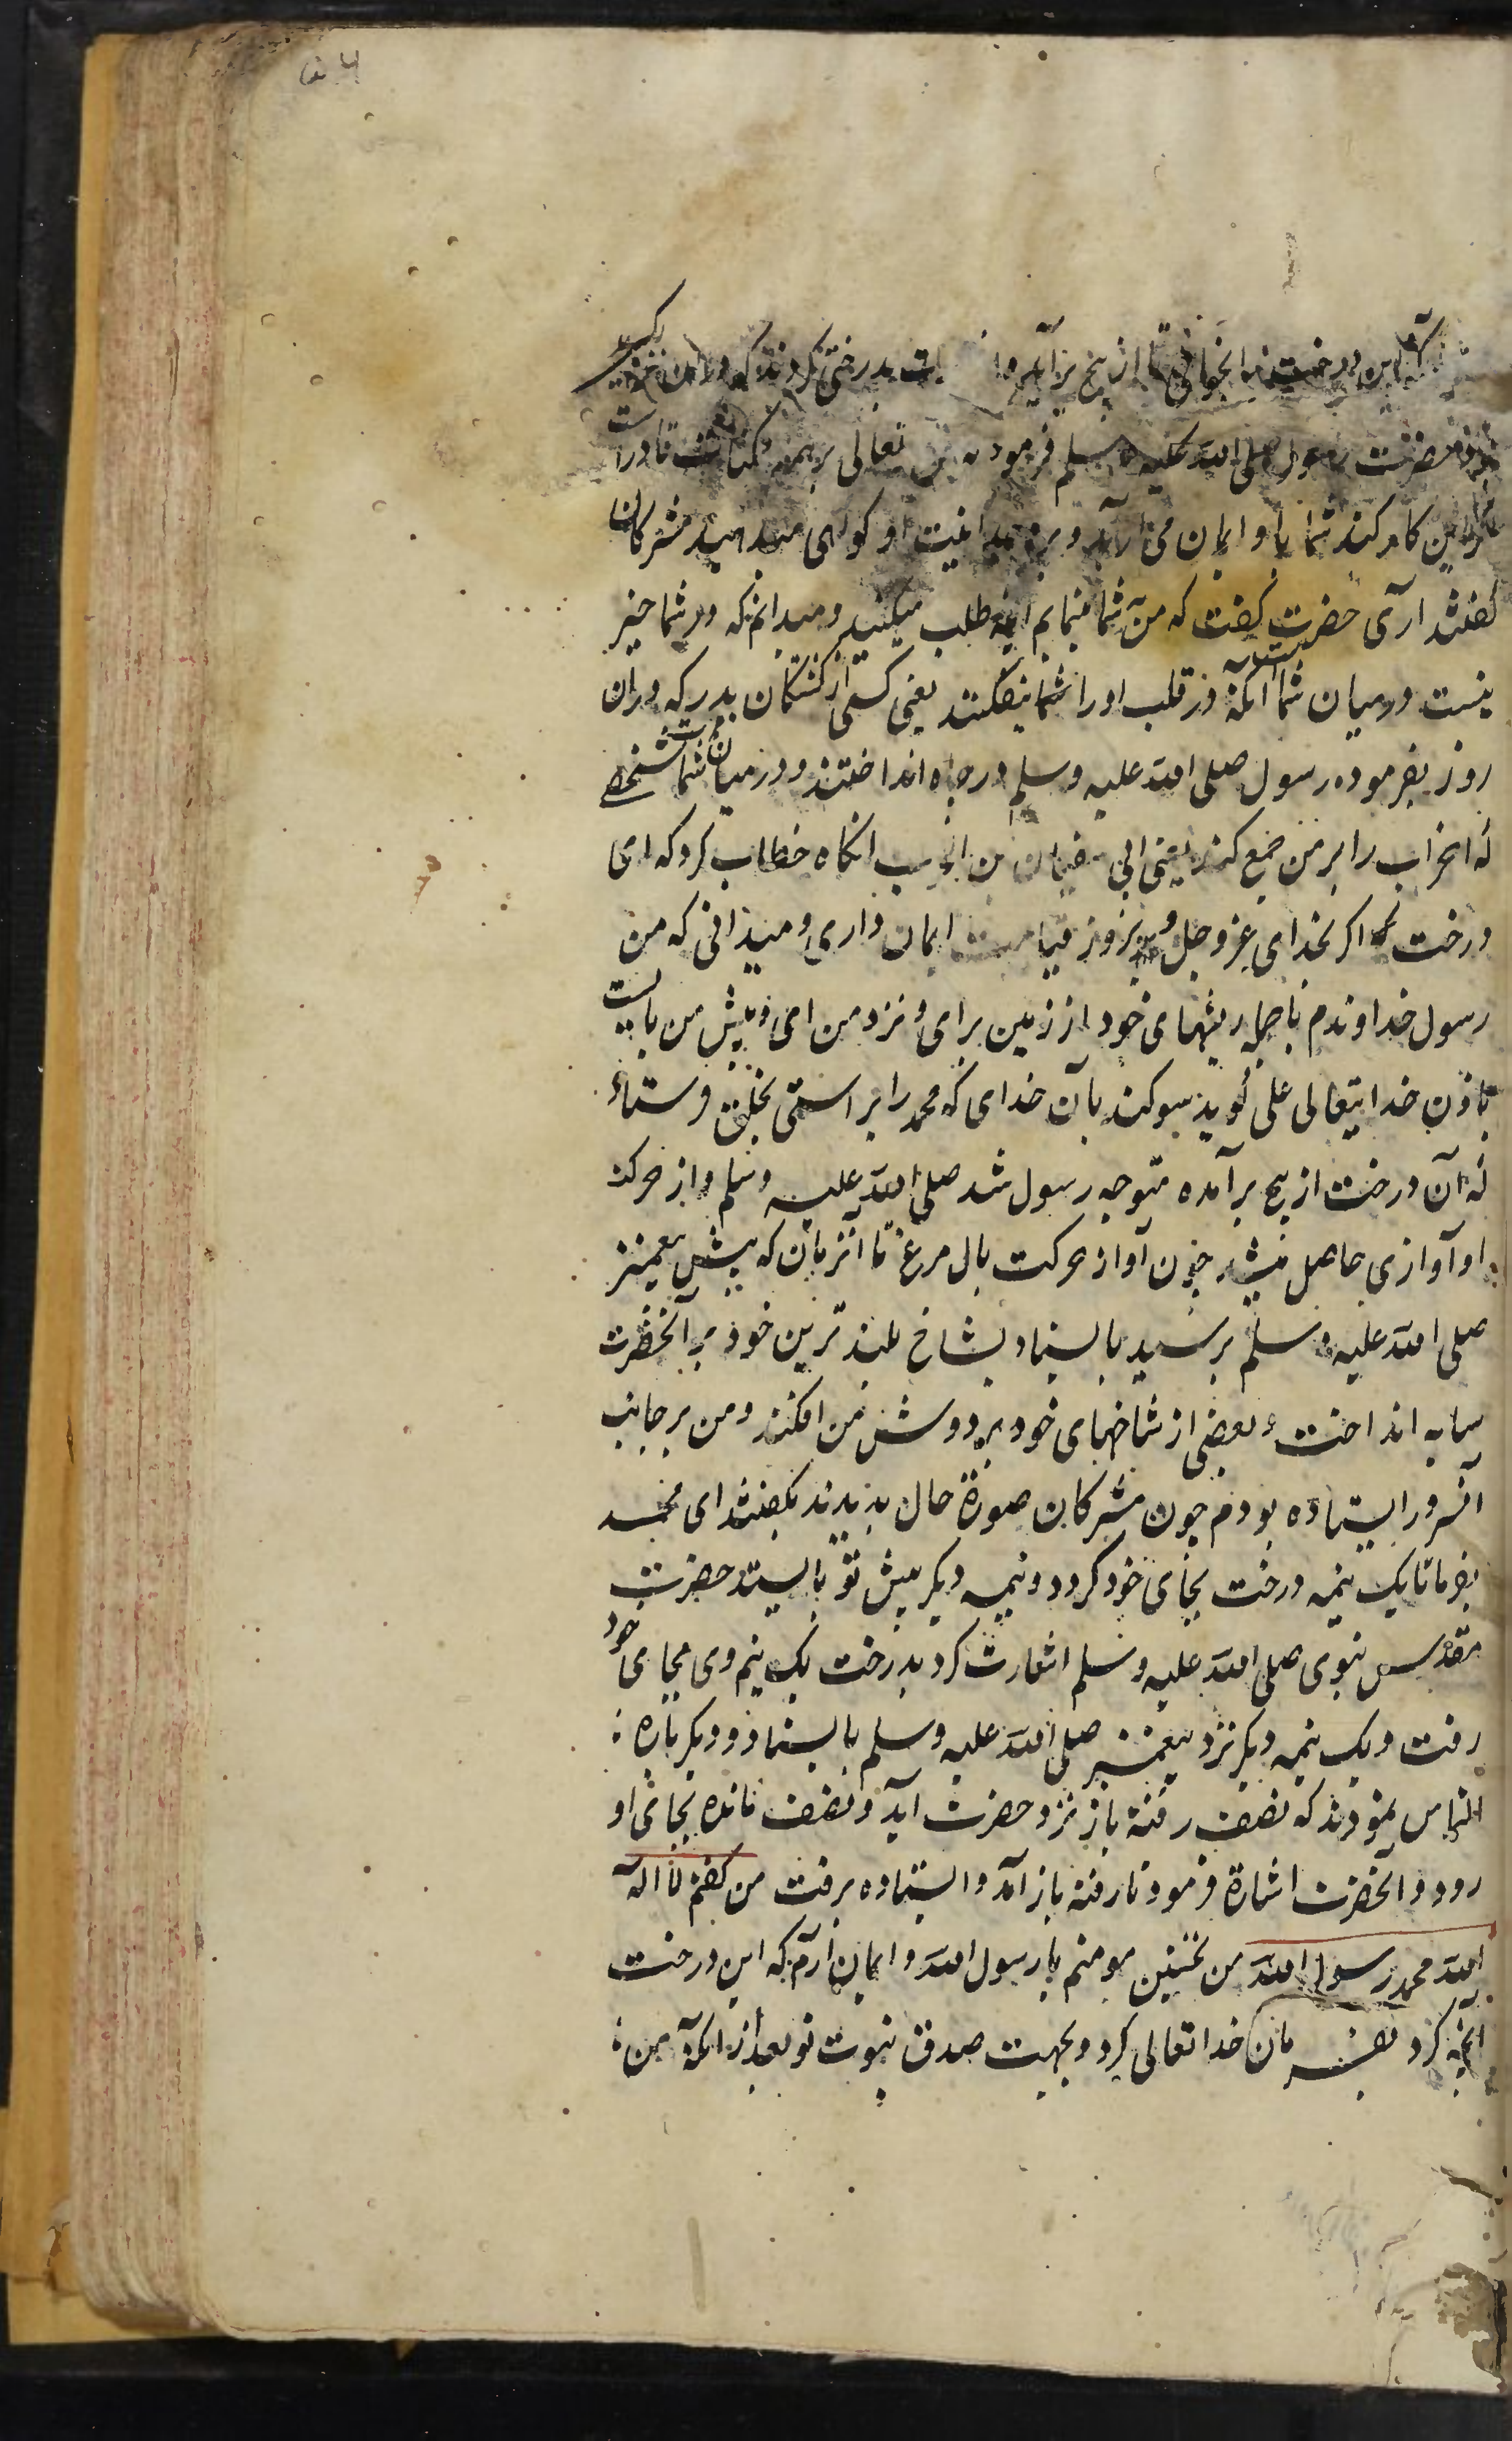 ۵۴
که این درخت را بخوانی تا از بیخ برآید و اشارت بدرختی کردند که در آن نزدیکی
بود حضرت رسول صلی الله علیه وسلم فرمود که حق تعالی بر همه ممکنات قادر است
اگر این کار کند شما باو ایمان می آرید و بر وحدانیت او کواهی میدهید مشرکان
کفتند آری حضرت کفت که من بشما بنمایم آنچه طلب میکنید و میدانم که در شما خیر
نیست و در میان شما آنکه در قلب او را بیفکنند یعنی کسی از کشتکان بدر که در آن
روز بفرموده رسول صلی الله علیه وسلم در چاه انداختند و در میان شما شخصی است
که احزاب را بر من جمع کند یعنی ابی سفیان بن حرب انکاه خطاب کرد که ای
درخت اکر بخدای عز وجل و بروز قیامت ایمان داری و میدانی که من
رسول خداوندم با جمله ریشهای خود از زمین برای و نزد من ای و پیش من بایست
باذن خدایتعالی علی کوید سوکند بآن خدای که محمد را براستی بخلق فرستاد
که آن درخت از بیخ برآمده متوجه رسول شد صلی الله علیه وسلم و از حرکت
او آوازی حاصل میشد چون آواز حرکت بال مرغ تا آنزمان که پیش پیغمبر
صلی الله علیه وسلم برسید بایستاد و بشاخ بلندترین خود بر آنحضرت
سایه انداخت و بعضی از شاخهای خود بر دوش من افکند و من بر جانب
آنسرور ایستاده بودم چون مشرکان صورة حال بدیدند بکفتند ای محمد
بفرما تا یک نیمه درخت بجای خود کردد و نیمه دیکر پیش تو بایستد حضرت
مقدس نبوی صلی الله علیه وسلم اشارت کرد بدرخت یک نیم وی بجای خود
رفت و یک نیمه دیکر نزد پیغمبر صلی الله علیه وسلم بایستاد و دیکر باره
التماس نمودند که نصف رفته باز نزد حضرت آید و نصف مانده بجای او
رود و آنحضرت اشارة فرمود تا رفته باز آمد و ایستاده برفت من کفتم لا اله
الا الله محمد رسول الله من نخستین مومنم یا رسول الله و ایمان آرم که این درخت
آنچه کرد بفرمان خدا تعالی کرد و بجهت صدق نبوت تو بعد از آنکه من